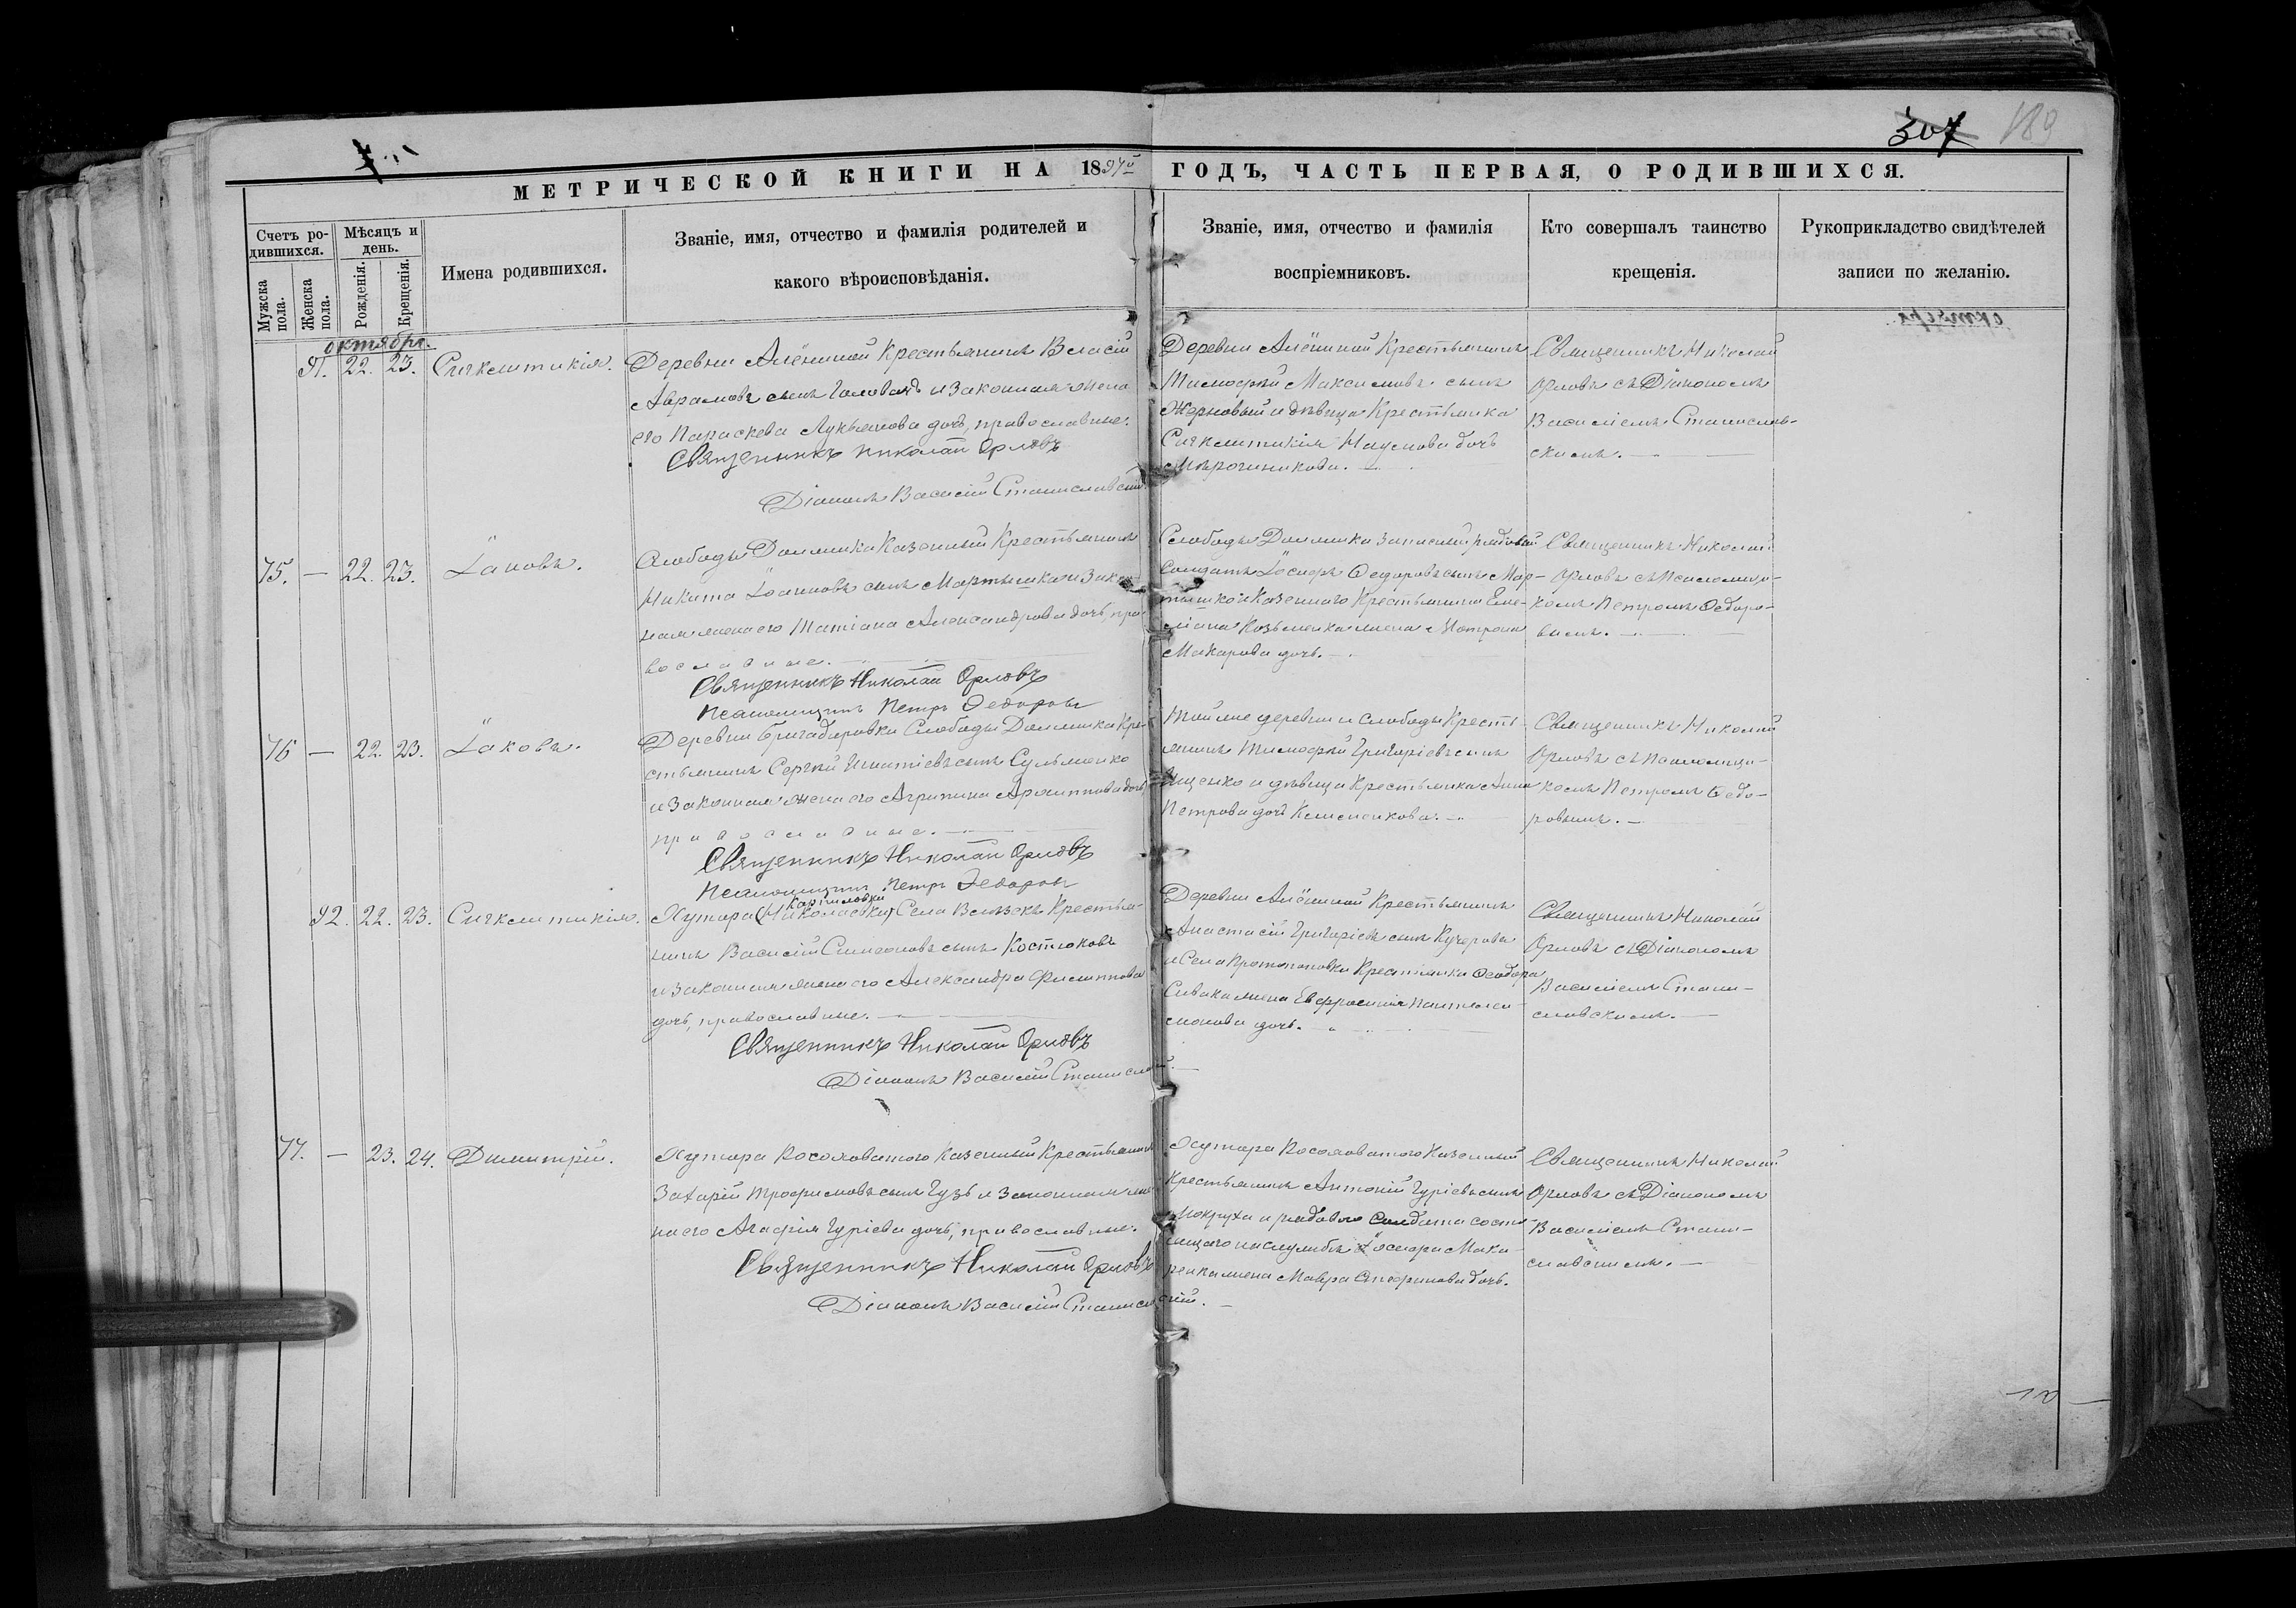 307 180
МЕТРИЧЕСКОЙ КНИГИ НА 1897й ГОДЪ, ЧАСТЬ ПЕРВАЯ, О РОДИВШИХСЯ.
Счетъ ро-
дившихся.
Мужска
пола.
Женска
пола.
Мѣсяцъ и
день.
Рожденія.
Крещенія.
Имена родившихся.
Званіе, имя, отчество и фамилія родителей и
какого вѣроисповѣданія.
Званіе, имя, отчество и фамилія
воспріемниковъ.
Кто совершалъ таинство
крещенія.
Рукоприкладство свидѣтелей
записи по желанію.
октября.
91. 22. 23. Сигклитикія.
Деревни Алёшиной Крестьянинъ Власій
Аврамовъ сынъ Головачъ и законная жена
его Параскева Лукьянова дочь, православные.
Священникъ Николай Орловъ
Діаконъ Василій Станиславскій
Деревни Алёшиной Крестьянинъ
Тимофей Максимовъ сынъ
Жерновый и дѣвица Крестьянка
Сигклитикія Наумова дочь
Мирошникова.
Священникъ Николай
Орловъ съ Діакономъ
Василіемъ Станислав-
скимъ.
75. — 22. 23. Іаковъ.
Слободы Должика Казенный Крестьянинъ
Никита Іоанновъ сынъ Мартышко и закон-
ная жена его Татіана Александрова дочь, пра-
вославные.
Священникъ Николай Орловъ
Псаломщикъ Петръ Ѳедоровъ
Слободы Должика запасный рядовой
Солдатъ Іосифъ Ѳедоровъ сынъ Мар-
тышко и Казеннаго Крестьянина Еме-
ліана Козьменка жена Матрона
Макарова дочь.
Священникъ Николай
Орловъ съ Псаломщи-
комъ Петромъ Ѳедоро-
вымъ.
76 — 22. 23. Іаковъ.
Деревни Бригадировки Слободы Должика Кре-
стьянинъ Сергѣй Игнатіевъ сынъ Сульженко
и законная жена его Агрипина Архиппова дочь,
православные.
Священникъ Николай Орловъ
Псаломщикъ Петръ Ѳедоровъ
Той же деревни и слободы Кресть-
янинъ Тимофей Григоріевъ сынъ
Ищенко и дѣвица Крестьянка Анна
Петрова дочь Клименкова.
Священникъ Николай
Орловъ съ Псаломщи-
комъ Петромъ Ѳедо-
ровымъ.
92. 22. 23. Сигклитикія.
Карпиловки
Хутора (Николаевки) Села Вязекъ Крестья-
нинъ Василій Симеоновъ сынъ Костюковъ
и законная жена его Александра Филиппова
дочь, православные.
Священникъ Николай Орловъ
Діаконъ Василій Станислав
Деревни Алёшиной Крестьянинъ
Анастасій Григоріевъ сынъ Кучеровъ
и Села Протопоповки Крестьянина Ѳеодора
Сивака жена Евфросинія Пантелеи-
монова дочь.
Священникъ Николай
Орловъ съ Діакономъ
Василіемъ Стани-
славскимъ.
77. — 23. 24. Димитрій.
Хутора Косоловатого Казенный Крестьянинъ
Захарій Трофимовъ сынъ Гузь и законная же-
на его Агафія Гуріева дочь, православные.
Священникъ Николай Орловъ
Діаконъ Василій Станиславскій.
Хутора Косоловатого Казенный
Крестьянинъ Антоній Гуріевъ сынъ
Мокруха и рядового Солдата состо-
ящаго на службѣ Іосифа Мака-
ренка жена Мавра Стефанова дочь.
Священникъ Николай
Орловъ съ Діакономъ
Василіемъ Стани-
славскимъ.